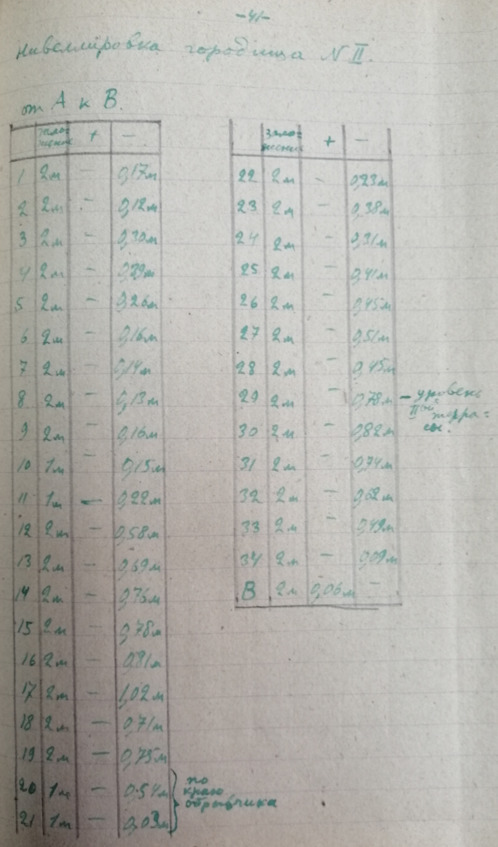 -41-
Нивеллировка городища N II.
от А к В.
зало-
жение + -
1 2м - 0,17м
2 2м - 0,12м
3 2м - 0,30м
4 2м - 0,29м
5 2м - 0,26м
6 2м - 0,16м
7 2м - 0,14м
8 2м - 0,13м
9 2м - 0,16м
10 1м - 0,15м
11 1м - 0,22м
12 2м - 0,58м
13 2м - 0,69м
14 2м - 0,76м
15 2м - 0,78м
16 2м - 0,81м
17 2м - 1,02м
18 2м - 0,71м
19 2м - 0,75м
20 1м - 0.54м
21 1м - 0,03м
по
краю
обрывчика
зало-
жение + -
22 2м - 0,23м
23 2м - 0,38м
24 2м - 0,31м
25 2м - 0,41м
26 2м - 0,45м
27 2м - 0,51м
28 2м - 0,45м
29 2м - 0,78м - уровень
II ой терра=
сы.
30 2м - 0,82м
31 2м - 0,74м
32 2м - 0,62м
33 2м - 0,49м
34 2м - 0,09м
В 2м 0,06м -